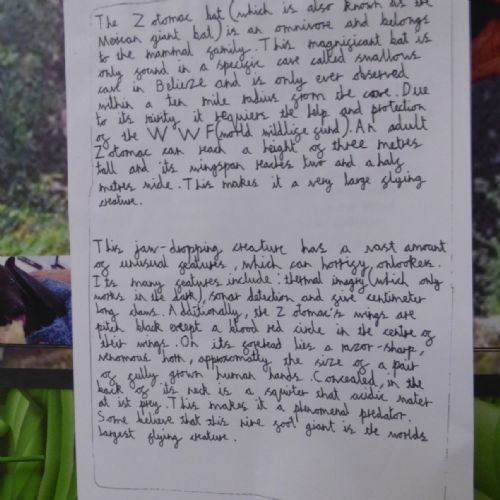 The Zotomac bat (which is also known as the
Mosican giant bat) is an omnivore and belongs
to the mammal family. This magnificant bat is
only found in a specific cave called smallows
cave in Belieze and is only ever observed
within a ten mile radius from the cave. Due
to its rarity it requiers the help and protection
of the WWF (world wildlife fund). An adult
Zotomac can reach a height of three metres
tall and its wingspan reaches two and a half
metres wide. This makes it a very large flying
creature.
This jaw-dropping creature has a vast amount
of unusual features, which can horrify onlookers.
Its many features include: thermal imagry (which only
works in the dark), sonar detection and five centimeter
long claws. Additionally, the Zotomac's wings are
pitch black exept a blood red circle in the centre of
their wings. On its forehead lies a razor-sharp,
venomous horn, approximatly the size of a pair
of fully grown human hands. Concealed, in the
back of its neck is a squirter that acidic water
at ist prey. This makes it a phenomenal predator.
Some believe that this nine foot giant is the worlds
largest flying creature.